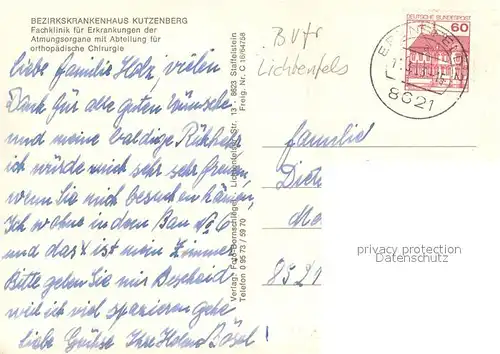 BEZIRKSKRANKENHAUS KUTZENBERG
Fachklinik für Erkrankungen der
Atmungsorgane mit Abteilung für
orthopädische Chirurgie
Liebe Familie Holz, vielen
Dank für alle guten Wünsche
und meine baldige Rückkehr
ich würde mich sehr sehr freuen,
wenn Sie mich besuchen können
Ich wohne in dem Bau No 6
und das x ist mein Zimmer
Bitte geben Sie mir Bescheid
weil ich viel spazieren gehe
Liebe Grüße Ihre
Verlag: Foto Bornschlegel · Lichtenfelser Str. 13 · 8623 Staffelstein
Telefon 0 95 73 / 59 70
Freig. Nr. C 18/64758
Lichtenfels
DEUTSCHE BUNDESPOST
60
8621
Familie
privacy protection
Datenschutz